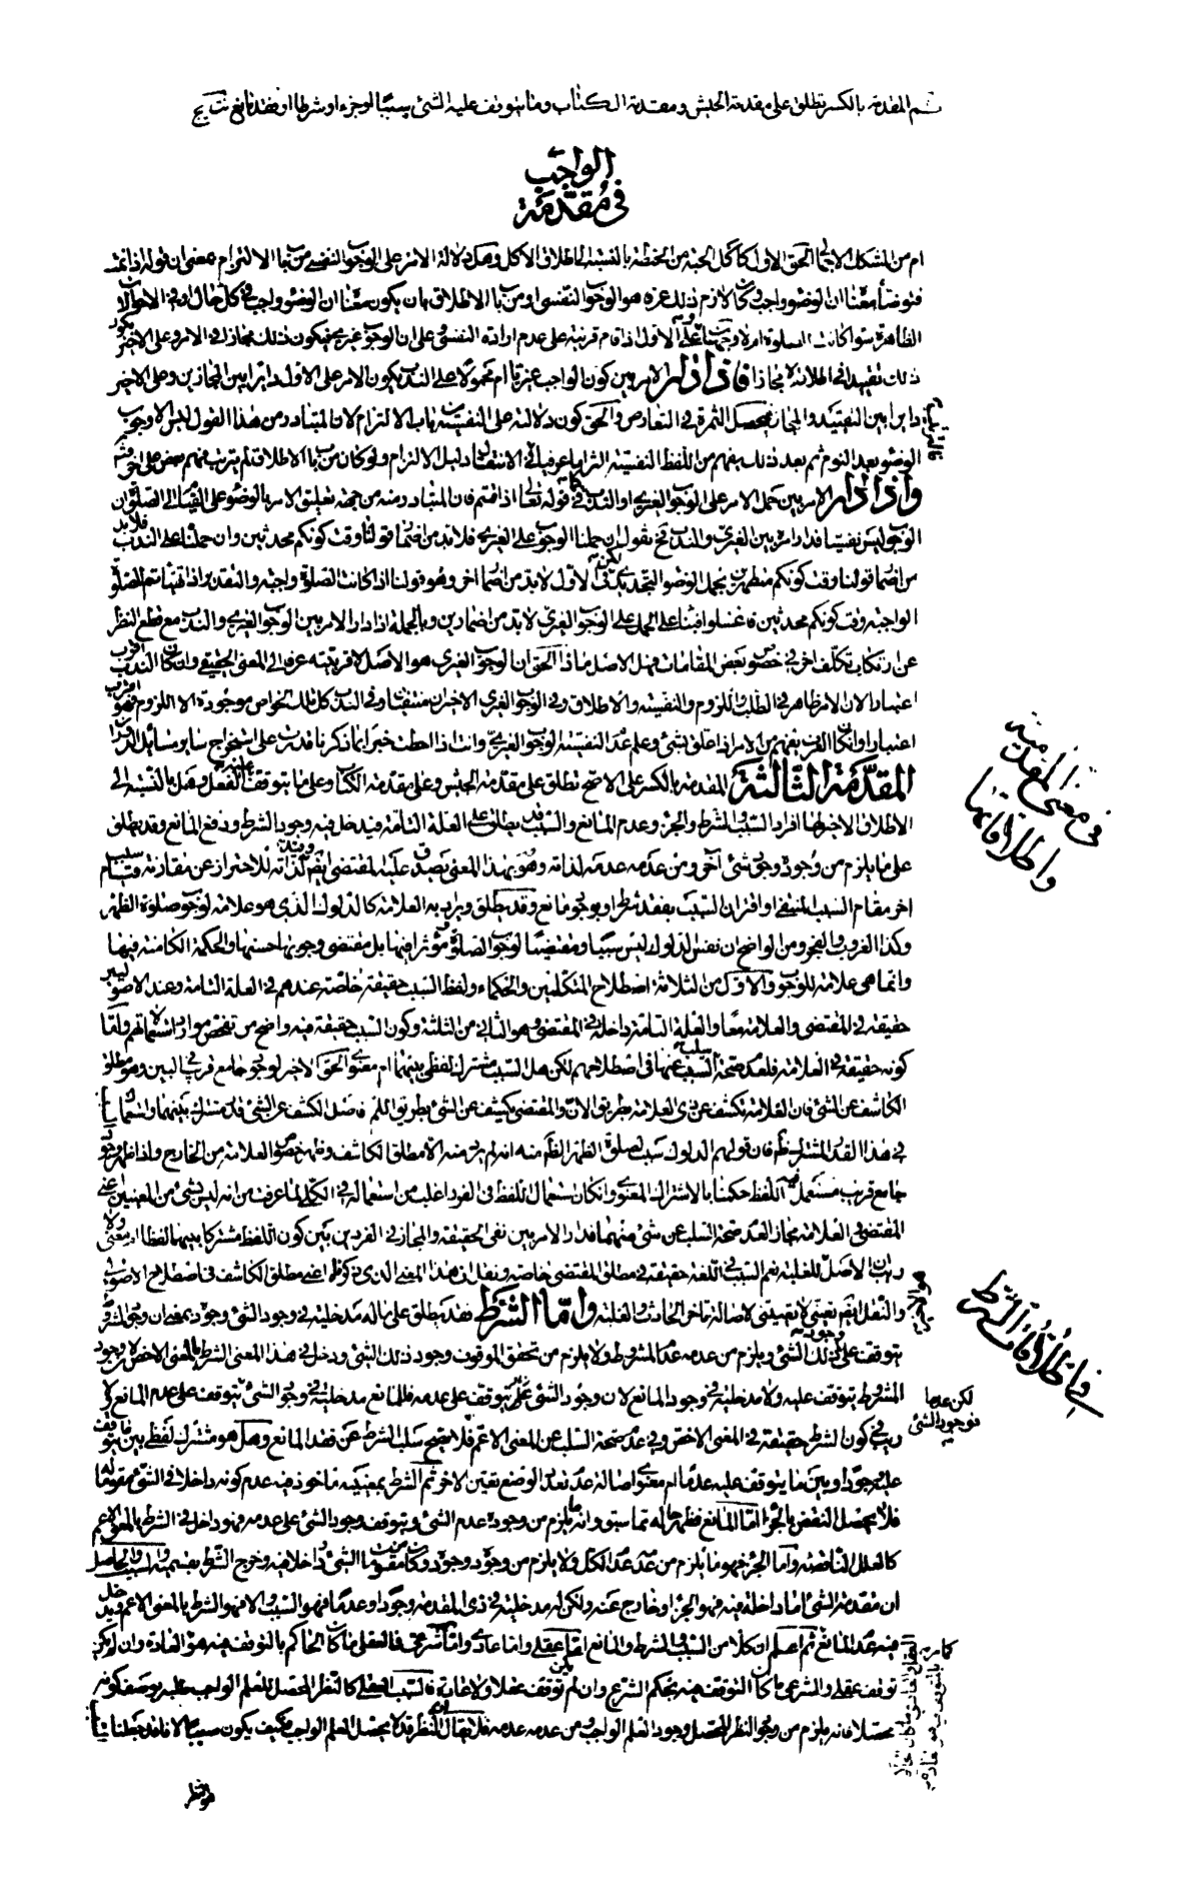 ثم المقدمة بالكسر تطلق على مقدمة الجيش ومقدمة الكتاب وما يتوقف عليه الشئ سببا او جزء او شرطا او فقد مانع
الواجب
فى مقدمة
ام من المشكل الاجمال الحق الاول كاكل الحبة من الحنطة بالنسبة الى اطلاق الاكل وهل دلالة الامر على الوجوب النفسى من باب الالتزام بمعنى ان قوله اذا نمت
فتوضأ معناه ان الوضوء واجب وكان لازم ذلك عرفا هو الوجوب النفسى او من باب الاطلاق بان يكون معناه ان الوضوء واجب فى كل حال او فى الاحوال
الظاهرة سواء كانت الصلوة امرا وجهان على الاول اذا قام قرينة على عدم ارادة النفسى وعلى ان الوجوب غيرى فيكون ذلك مجازا فى الامر وعلى الاخير يكون
ذلك تقييدا فى اطلاقه لا مجازا فاذا دار الامر بين كون الواجب غيريا ام محمولا على الندب يكون الامر على الاول دائرا بين المجازين وعلى الاخير
دايرا بين التقييد والمجاز فيحصل الثمرة فى التعارض والحق كون دلالته على النفسية من باب الالتزام لان المتبادر من هذا القول ليس الا وجوب
الوضوء بعد النوم ثم بعد ذلك يفهم من اللفظ النفسية التزاما عرفيا فى الانتقال دليل الالتزام ولو كان من باب الاطلاق لم يترتب فهم معنى على اخر
واذا دار الامر بين حمل الامر على الوجوب الغيرى او الندب كما فى قوله تعالى اذا قمتم فان المتبادر منه من جهة تعليق الامر بالوضوء على القيام الى الصلوة ان
الوجوب ليس نفسيا فدار امره بين الغيرى والندب فح نقول ان حملنا الوجوب على الغيرى فلا بد من اضمار قولنا وقت كونكم محدثين وان حملنا على الندب فلا بد
من اضمار قولنا وقت كونكم متطهرين بحمل الوضوء التجديدى لكن فى الاول لا بد من اضمار اخر وهو قولنا اذا كانت الصلوة واجبة والتقدير اذا قمتم الى الصلوة
الواجبة وقت كونكم محدثين فاغسلوا فبناء على الحمل على الوجوب الغيرى لا بد من اضمارين وبالجملة اذا دار الامر بين الوجوب الغيرى والندب مع قطع النظر
عن ارتكاب تكلف اخر فى خصوص بعض المقامات فهل الاصل ماذا الحق ان الوجوب الغيرى هو الاصل لاقربيته عرفا الى المعنى الحقيقى وان كان الندب اقرب
اعتبارا لان الامر ظاهر فى الطلب واللزوم والنفسية والاطلاق وفى الوجوب الغيرى الاخيران منتفيان وفى الندب كل تلك الخواص موجودة الا اللزوم فهو اقرب
اعتبارا وان كان العرف يفهم من الامر اذا علق بشئ وعلم عدم النفسية الوجوب الغيرى وانت اذا احطت خبرا بما ذكرنا قدرت على استخراج ساير مسائل الدوران
المقدمة الثالثة المقدمة بالكسر على الاصح تطلق على مقدمة الجيش وعلى مقدمة الكتاب وعلى ما يتوقف عليه الفعل وهل بالنسبة الى
الاطلاق الاخير لها افراد السبب والشرط والجزء وعدم المانع والسبب قد يطلق على العلة التامة فيدخل فيه وجود الشرط ودفع المانع وقد يطلق
على ما يلزم من وجوده وجود شئ اخر ومن عدمه عدمه لذاته وهو بهذا المعنى يصدق على المقتضى وقيد لذاته للاحتراز عن مقارنة قيام سبب
اخر مقام السبب المنتفى او اقتران السبب بفقد شرط او بوجود مانع وقد يطلق ويراد به العلامة كالدلوك الذى هو علامة لوجوب صلوة الظهر
وكذا الغروب والفجر ومن الواضح ان نفس الدلوك ليس سببا ومقتضيا لوجوب الصلوة ومؤثرا فيها بل مقتضى وجوبها حسنها والحكمة الكامنة فيها
وانما هى علامة للوجوب والاول من الثلاثة اصطلاح المتكلمين والحكماء ولفظ السبب حقيقة خاصة عندهم فى العلة التامة وعند الاصوليين
حقيقة فى المقتضى والعلامة معا والعلة التامة داخلة فى المقتضى وهو الثانى من الثلثة وكون السبب حقيقة فيه واضح من تفحص موارد استعمالاتهم واما
كونه حقيقة فى العلامة فلعدم صحة سلب السبب عنها فى اصطلاحهم لكن هل السبب مشترك لفظى بينهما ام معنوى الحق الاخير لوجود جامع قريب فى البين وهو مطلق
الكاشف عن الشئ فان العلامة تكشف عن ذى العلامة بطريق الان والمقتضى يكشف عن الشئ بطريق اللم فاصل الكشف عن الشئ قدر مشترك بينهما واستعماله
فى هذا القدر المشترك ظاهر فان قولهم الدلوك سبب لصلوة الظهر الظاهر منه انه لم يرد منه الا مطلق الكاشف وفهم خصوص العلامة من الخارج واذا ظهر وجود
جامع قريب مستعمل فيه اللفظ حكمنا بالاشتراك المعنوى وان كان استعمال اللفظ فى الفرد اغلب من استعماله فى الكلى لما عرفت من انه ليس شئ من المعنيين اعنى
المقتضى والعلامة مجازا لعدم صحة السلب عن شئ منهما فدار الامر بين نفى الحقيقة والمجاز فى الفردين بين كون اللفظ مشتركا بينهما لفظا او معنى ولا
ريب ان الاصل للغلبة نعم السبب فى اللغة حقيقة فى مطلق المقتضى خاصة ونقل الى هذا المعنى الذى ذكرناه اعنى مطلق الكاشف فى اصطلاح الاصوليين
والنقل ايضا تعينى لا تعيينى لاصالة تاخر الحادث والغلبة واما الشرط فقد يطلق على ماله مدخلية فى وجود الشئ وجودا بمعنى ان وجود الشئ
يتوقف على وجود ذلك الشئ ويلزم من عدمه عدم المشروط ولا يلزم من تحقق الموقوف وجود ذلك الشئ ودخل فى هذا المعنى الشرط بالمعنى الاخص لا وجود
المشروط يتوقف عليه ولا مدخلية فى وجود المانع لان وجود الشئ لم يتوقف على عدمه فللمانع مدخلية فى وجود الشئ يتوقف على عدم المانع ولا
ريب فى كون الشرط حقيقة فى المعنى الاخص وفى عدم صحة السلب عن المعنى الاعم فلا يصح سلب الشرط عن فقد المانع وهل هو مشترك لفظى بين ما يتوقف
عليه وجودا وبين ما يتوقف عليه عدما ام معنوى اصالة عدم تعدد الوضع تعين الاخر ثم الشرط بمعنييه ماخوذ فيه عدم كونه داخلا فى الشئ مقوما له
فلا يحصل النقض بالجزء اما المانع فظهر حاله مما سبق وانه ما يلزم من وجوده عدم الشئ ويتوقف وجود الشئ على عدمه فهو داخل فى الشرط بالمعنى الاعم
كالعلل الناقصة واما الجزء فهو ما يلزم من عدمه عدم الكل ولا يلزم من وجوده وجوده وكان مقوما الشئ داخلا فيه وخرج الشرط بقسميه والسبب والحاصل
ان مقدمة الشئ اما داخلة فيه فهو الجزء او خارج عنه ولكن له مدخلية فى ذى المقدمة وجودا وعدما فهو السبب والا فهو الشرط بالمعنى الاعم ويدخل
فيه عدم المانع ثم اعلم ان كلا من السبب والشرط والمانع اما عقلى واما عادى واما شرعى فالعقلى ما كان الحاكم بالتوقف فيه هو العادة وان لم يكن
توقف عقلى والشرعى ما كان التوقف فيه بحكم الشرع وان لم يكن توقف عقلا ولا عادة فالسبب العقلى كالنظر المحصل للعلم الواجب عليه بوصف كونه
محصلا فانه يلزم من وجود النظر المحصل وجود العلم الواجب ومن عدمه عدمه فلا يقال ان النظر قد لا يحصل العلم الواجب فكيف يكون سببا لانا قد جعلنا
فى معنى المقدمة
واطلاقاتها
فى اطلاقات الشرط
لكن عدمها
فوجود الشئ
هو النظر